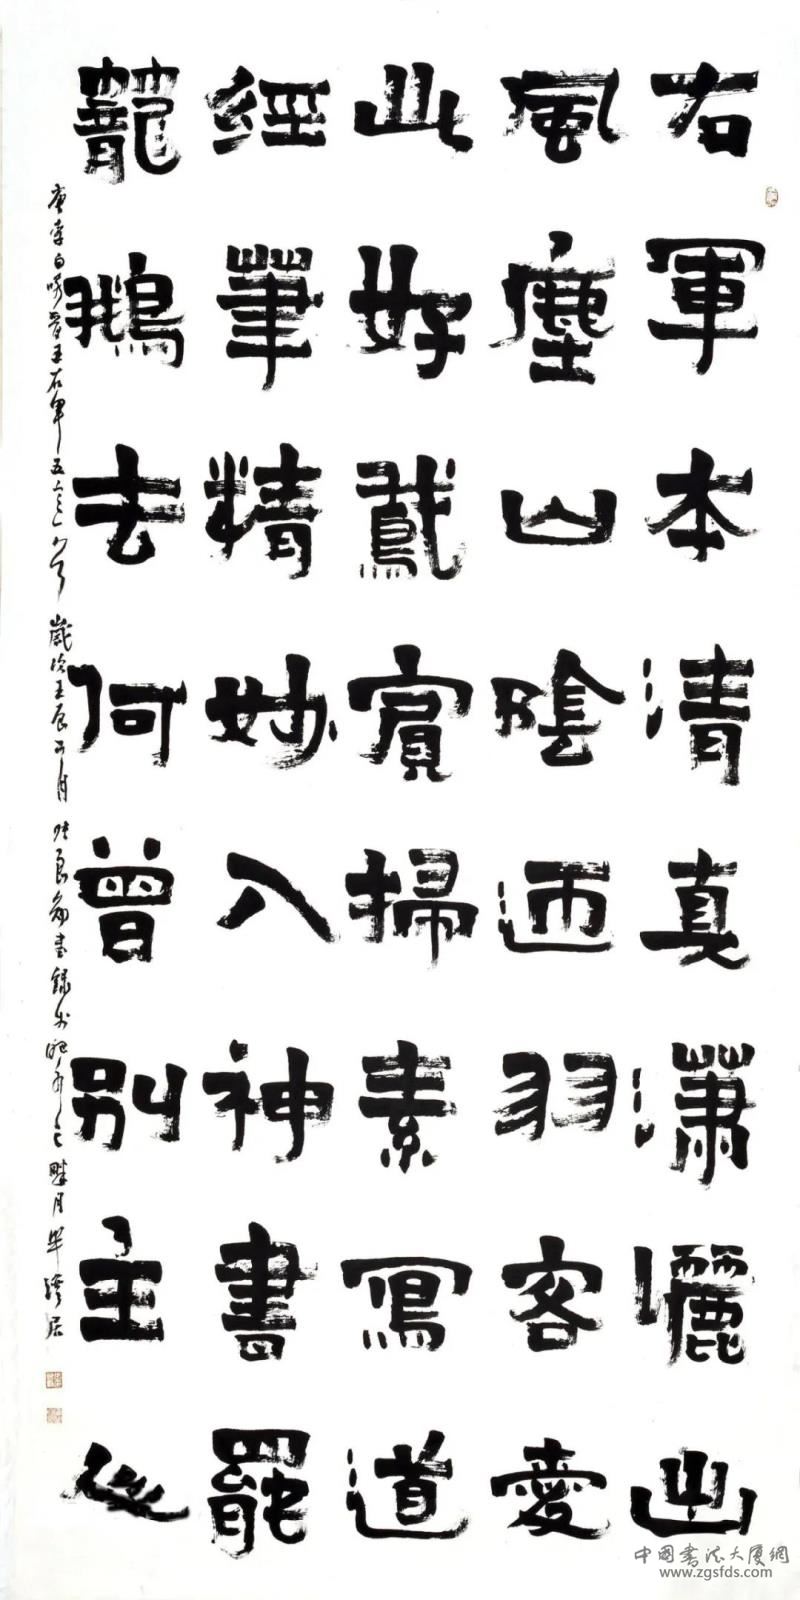 右軍本清真瀟灑出
風塵山陰遇羽客愛
此好鵞賓掃素寫道
經筆精妙入神書罷
籠鵝去何曾別主人
唐李白咏晋王右軍五言 歲次壬辰 月 張良勛書錄 居
中國書法大廈網
www.zgsfds.com